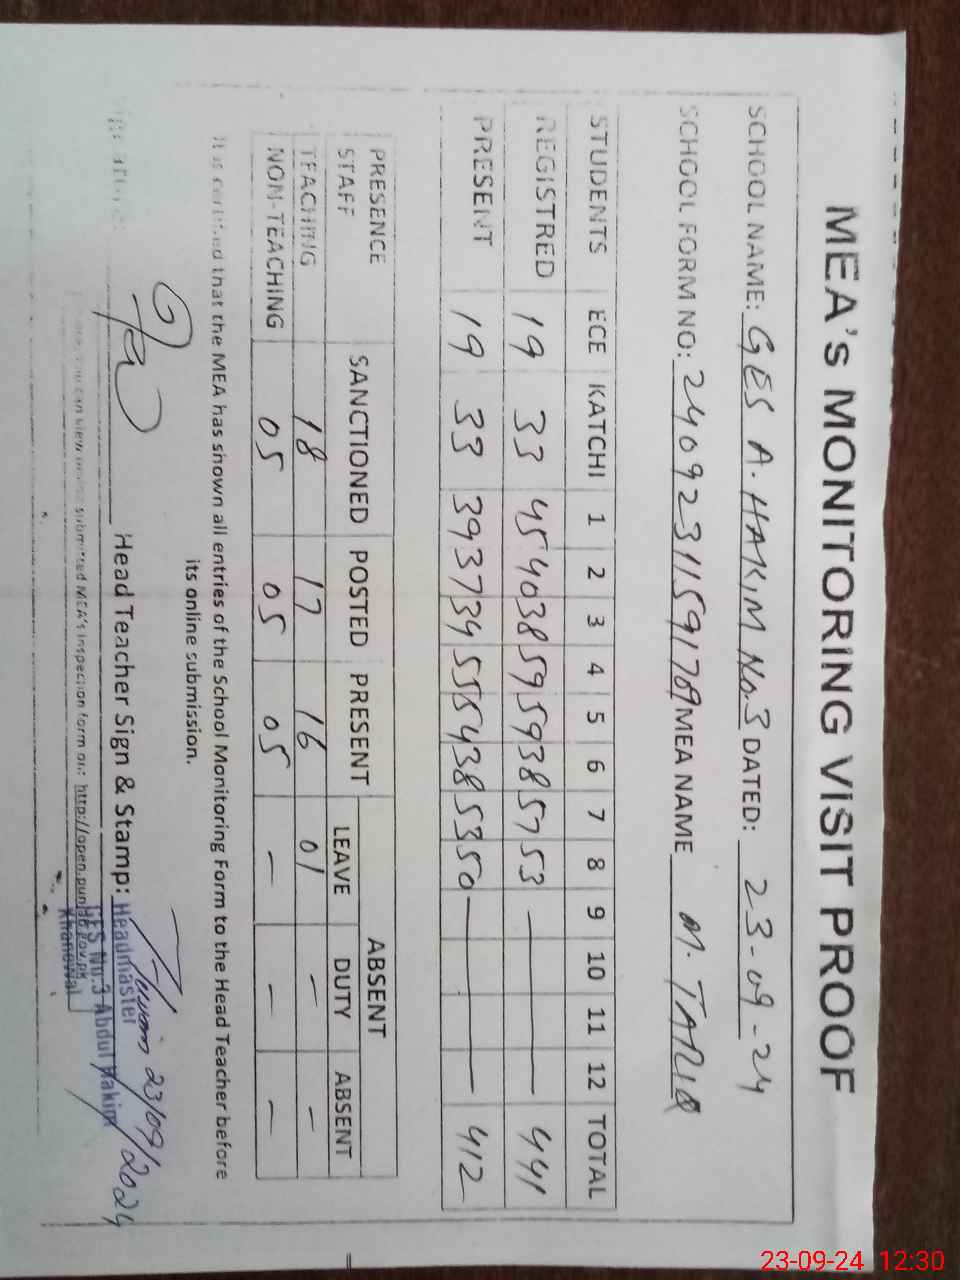 MEA's MONITORING VISIT PROOF
SCHOOL NAME: GES A. HAKIM No.3 DATED: 23-09-24
SCHOOL FORM NO: 24092311591789 MEA NAME M. TARIQ
STUDENTS ECE KATCHI 1 2 3 4 5 6 7 8 9 10 11 12 TOTAL
REGISTRED 19 33 45 40 38 59 59 38 57 53 — 441
PRESENT 19 33 39 37 34 55 54 38 53 50 — 412
PRESENCE STAFF SANCTIONED POSTED PRESENT ABSENT
LEAVE DUTY ABSENT
TEACHING 18 17 16 01 — —
NON-TEACHING 05 05 05 — — —
It is certified that the MEA has shown all entries of the School Monitoring Form to the Head Teacher before
its online submission.
Head Teacher Sign & Stamp: Headmaster
23/09/2024
No.3 Abdul Hakim
Khanewal
you can view submitted MEA's inspection form on: http://open.punjab.gov.pk
23-09-24 12:30